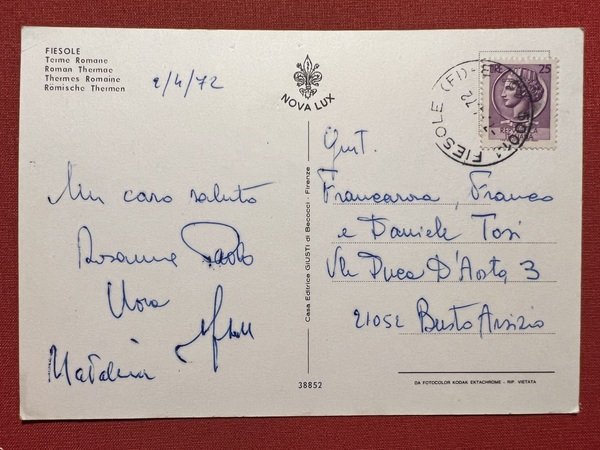 FIESOLE
Terme Romane
Roman Thermae
Thermes Romaine
Römische Thermen
2/4/72
NOVA LUX
25
FIESOLE (FI)
Un caro saluto
Rosanna Paolo
Nora
Gent.
Francarosa, Franco
e Daniele Tosi
Vle Duca D'Aosta, 3
21052 Busto Arsizio
Casa Editrice GIUSTI di Becocci - Firenze
38852
DA FOTOCOLOR KODAK EKTACHROME - RIP. VIETATA